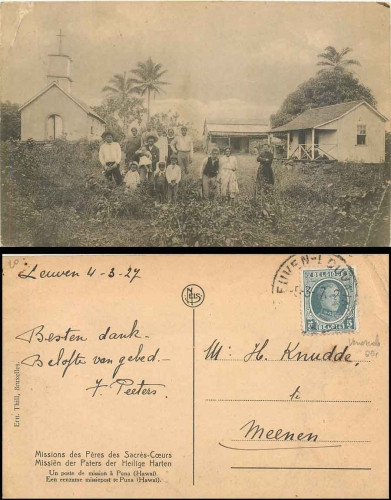 Leuven 4-3-27
Besten dank.
Belofte van gebed.
F. Peeters
Missions des Pères des Sacrés-Cœurs
Missiën der Paters der Heilige Harten
Un poste de mission à Puna (Hawaï).
Een eenzame missiepost te Puna (Hawaï).
Ern. Thill, Bruxelles.
NELS
BELGIQUE
BELGIË
Mr. H. Knudde,
te
Meenen